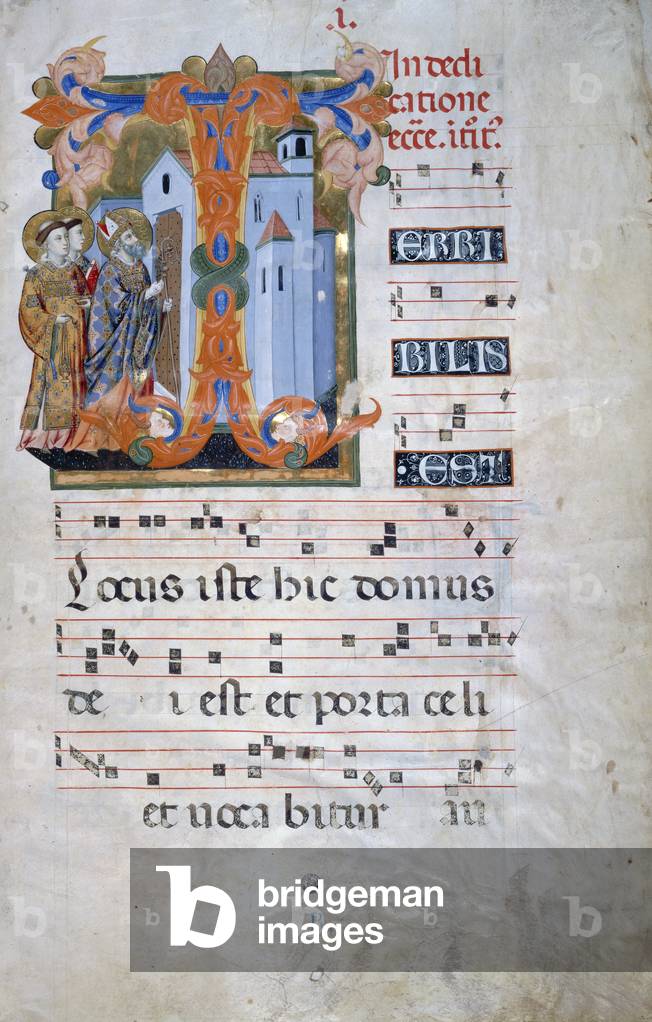 .i.
In dedi
catione
ecc̄e. itr̄t.
T
ERRI
BILIS
EST
Locus iste hic domus
de i est et porta celi
et uoca bitur au
b bridgeman
images